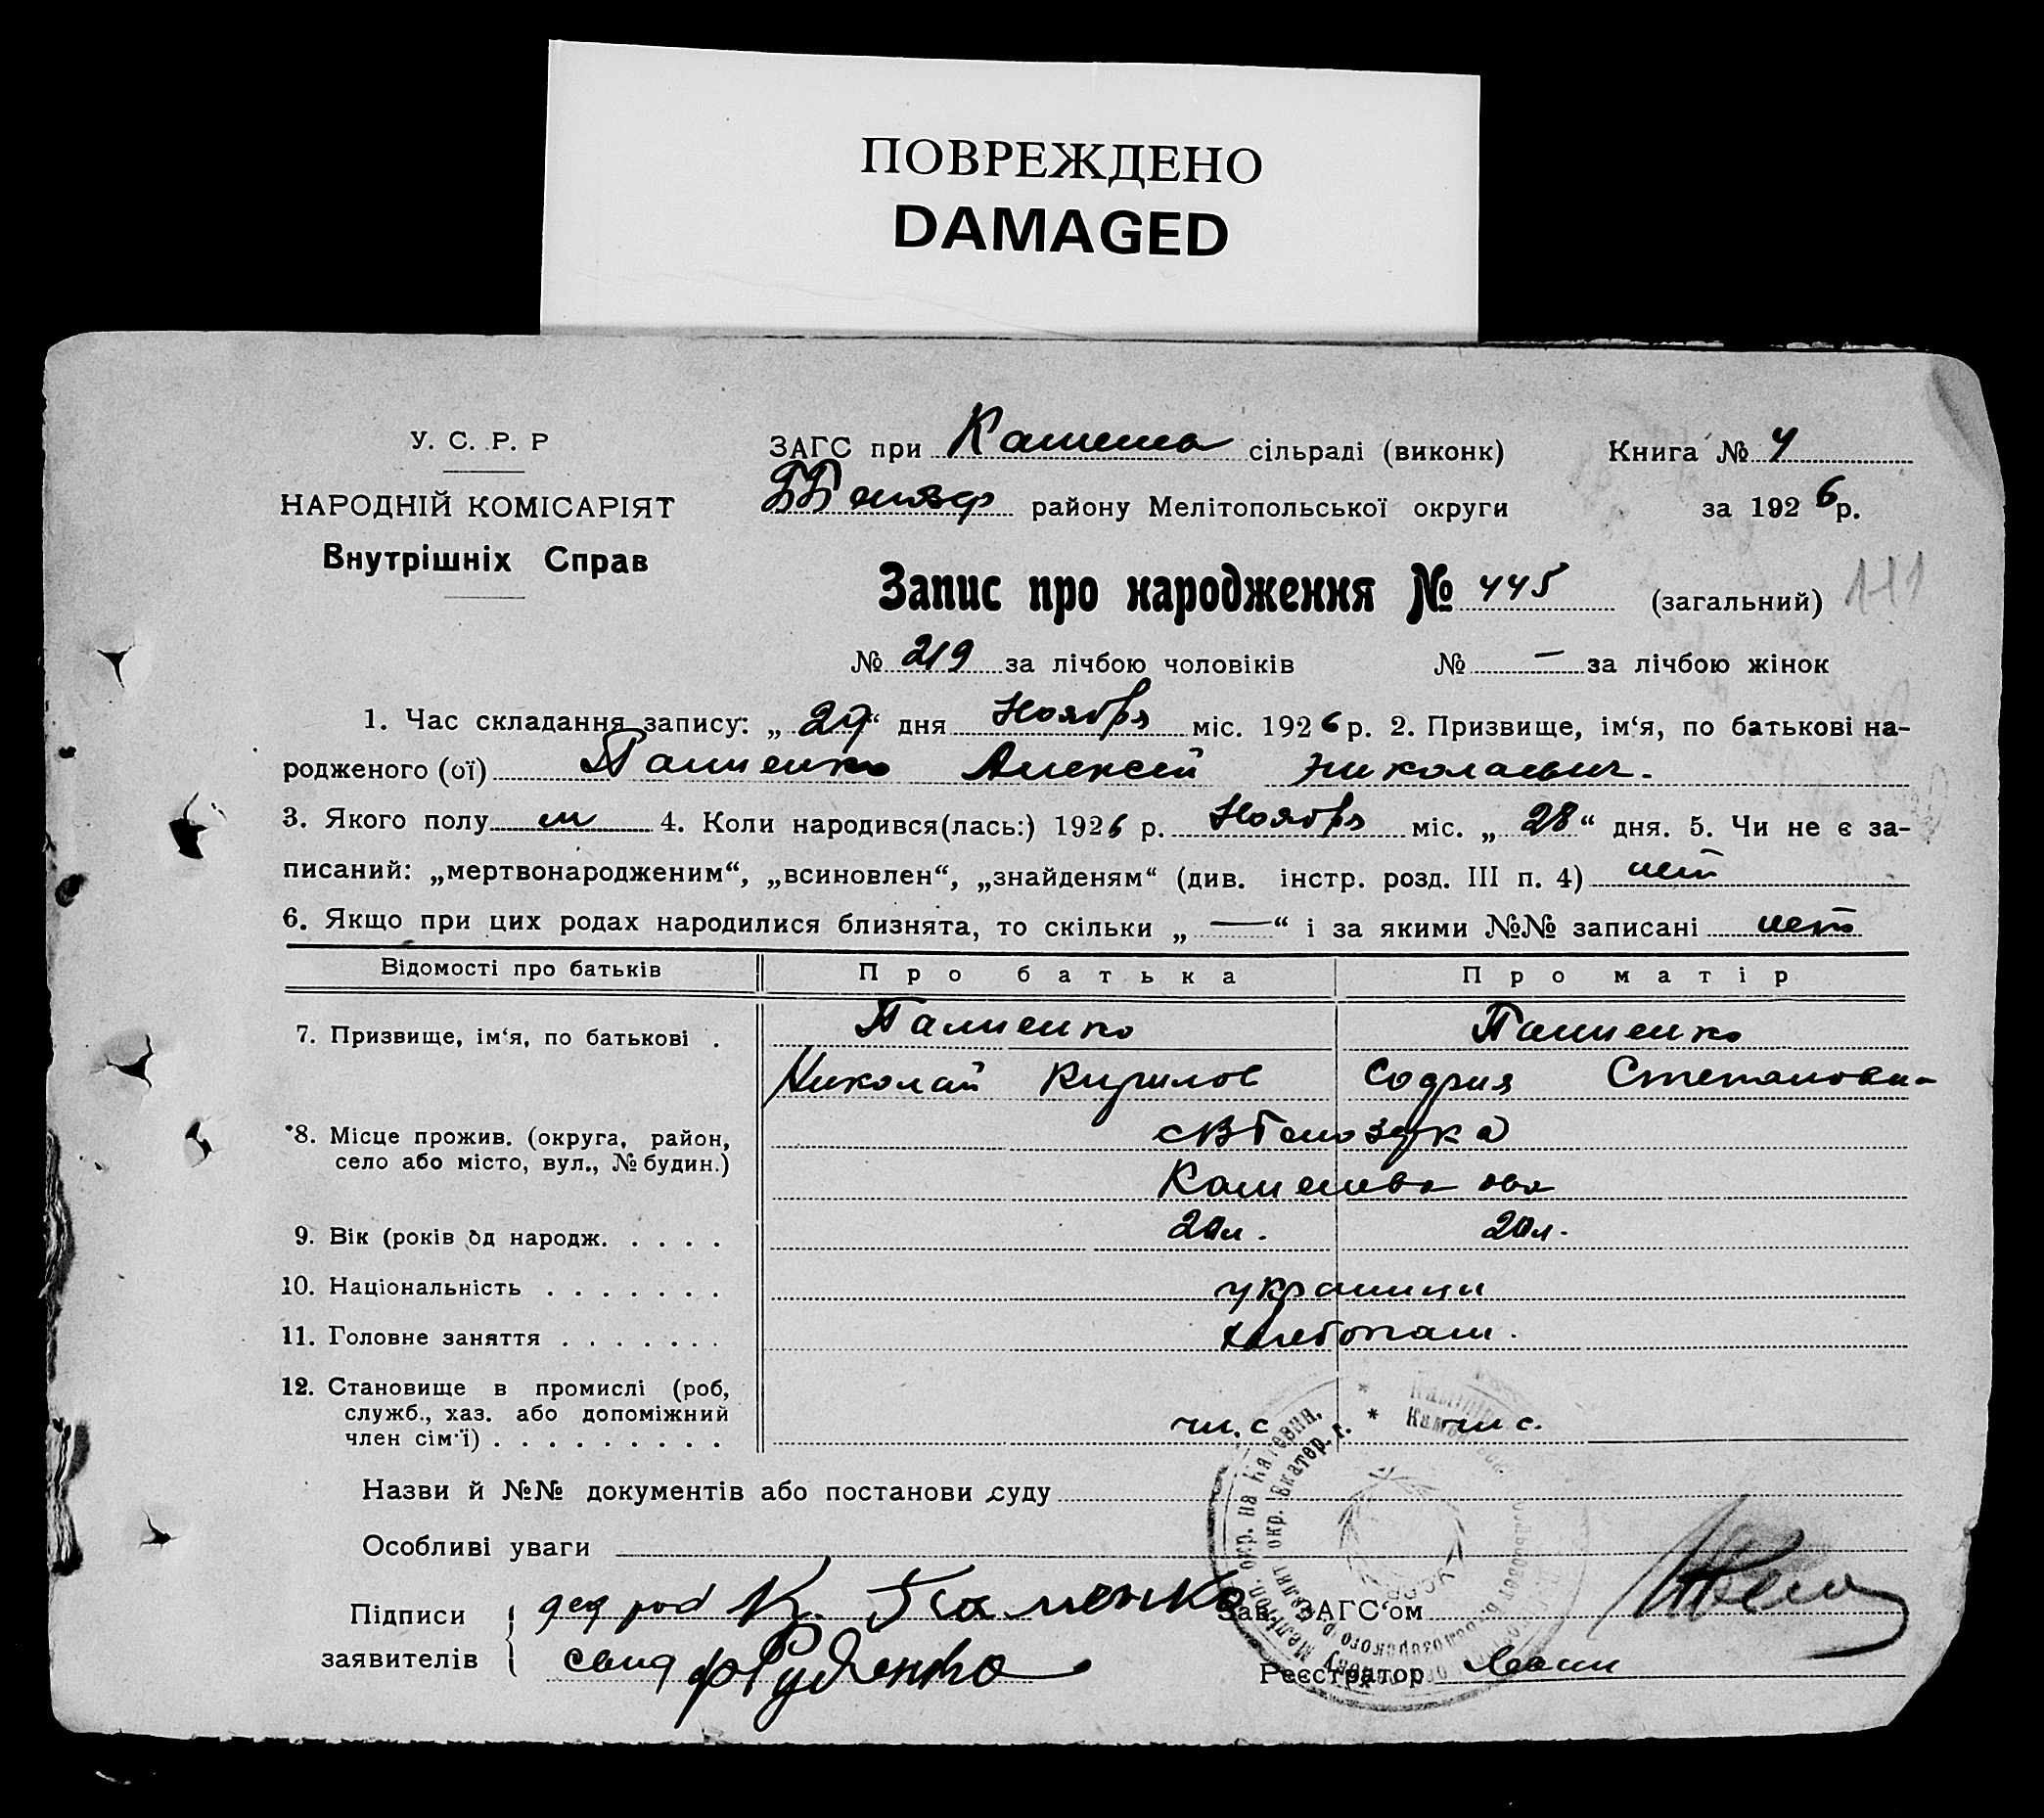 ПОВРЕЖДЕНО
DAMAGED
У. С. Р. Р
НАРОДНІЙ КОМІСАРІЯТ
Внутрішніх Справ
ЗАГС при сільраді (виконк)
району Мелітопольської округи
Книга № 4
за 1926 р.
Запис про народження № 445 (загальний) 111
№ 219 за лічбою чоловіків № — за лічбою жінок
1. Час складання запису: „29“ дня Ноября міс. 1926 р. 2. Призвище, ім‘я, по батькові на-
родженого (ої) Алексей Николаевич.
3. Якого полу м 4. Коли народився(лась:) 1926 р. Ноября міс. „28“ дня. 5. Чи не є за-
писаний: „мертвонародженим“, „всиновлен“, „знайденям“ (див. інстр. розд. III п. 4) нет
6. Якщо при цих родах народилися близнята, то скільки „—“ і за якими №№ записані нет
Відомості про батьків Про батька Про матір
7. Призвище, ім‘я, по батькові .
Николай Кирилов София Степанови-
*8. Місце прожив. (округа, район,
село або місто, вул., № будин.)
9. Вік (років од народж. . . . . 20 л. 20 л.
10. Національність . . . . . . . украинци
11. Головне заняття . . . . . . . хлебопаш.
12. Становище в промислі (роб,
служб., хаз. або допоміжний
член сім‘ї) . . . . . . . . . ч.с ч.с.
Назви й №№ документів або постанови суду
Особливі уваги
Підписи
заявителів
дед род К.
свид Ф Руденко
Зав. ЗАГС‘ом
Реєстратор